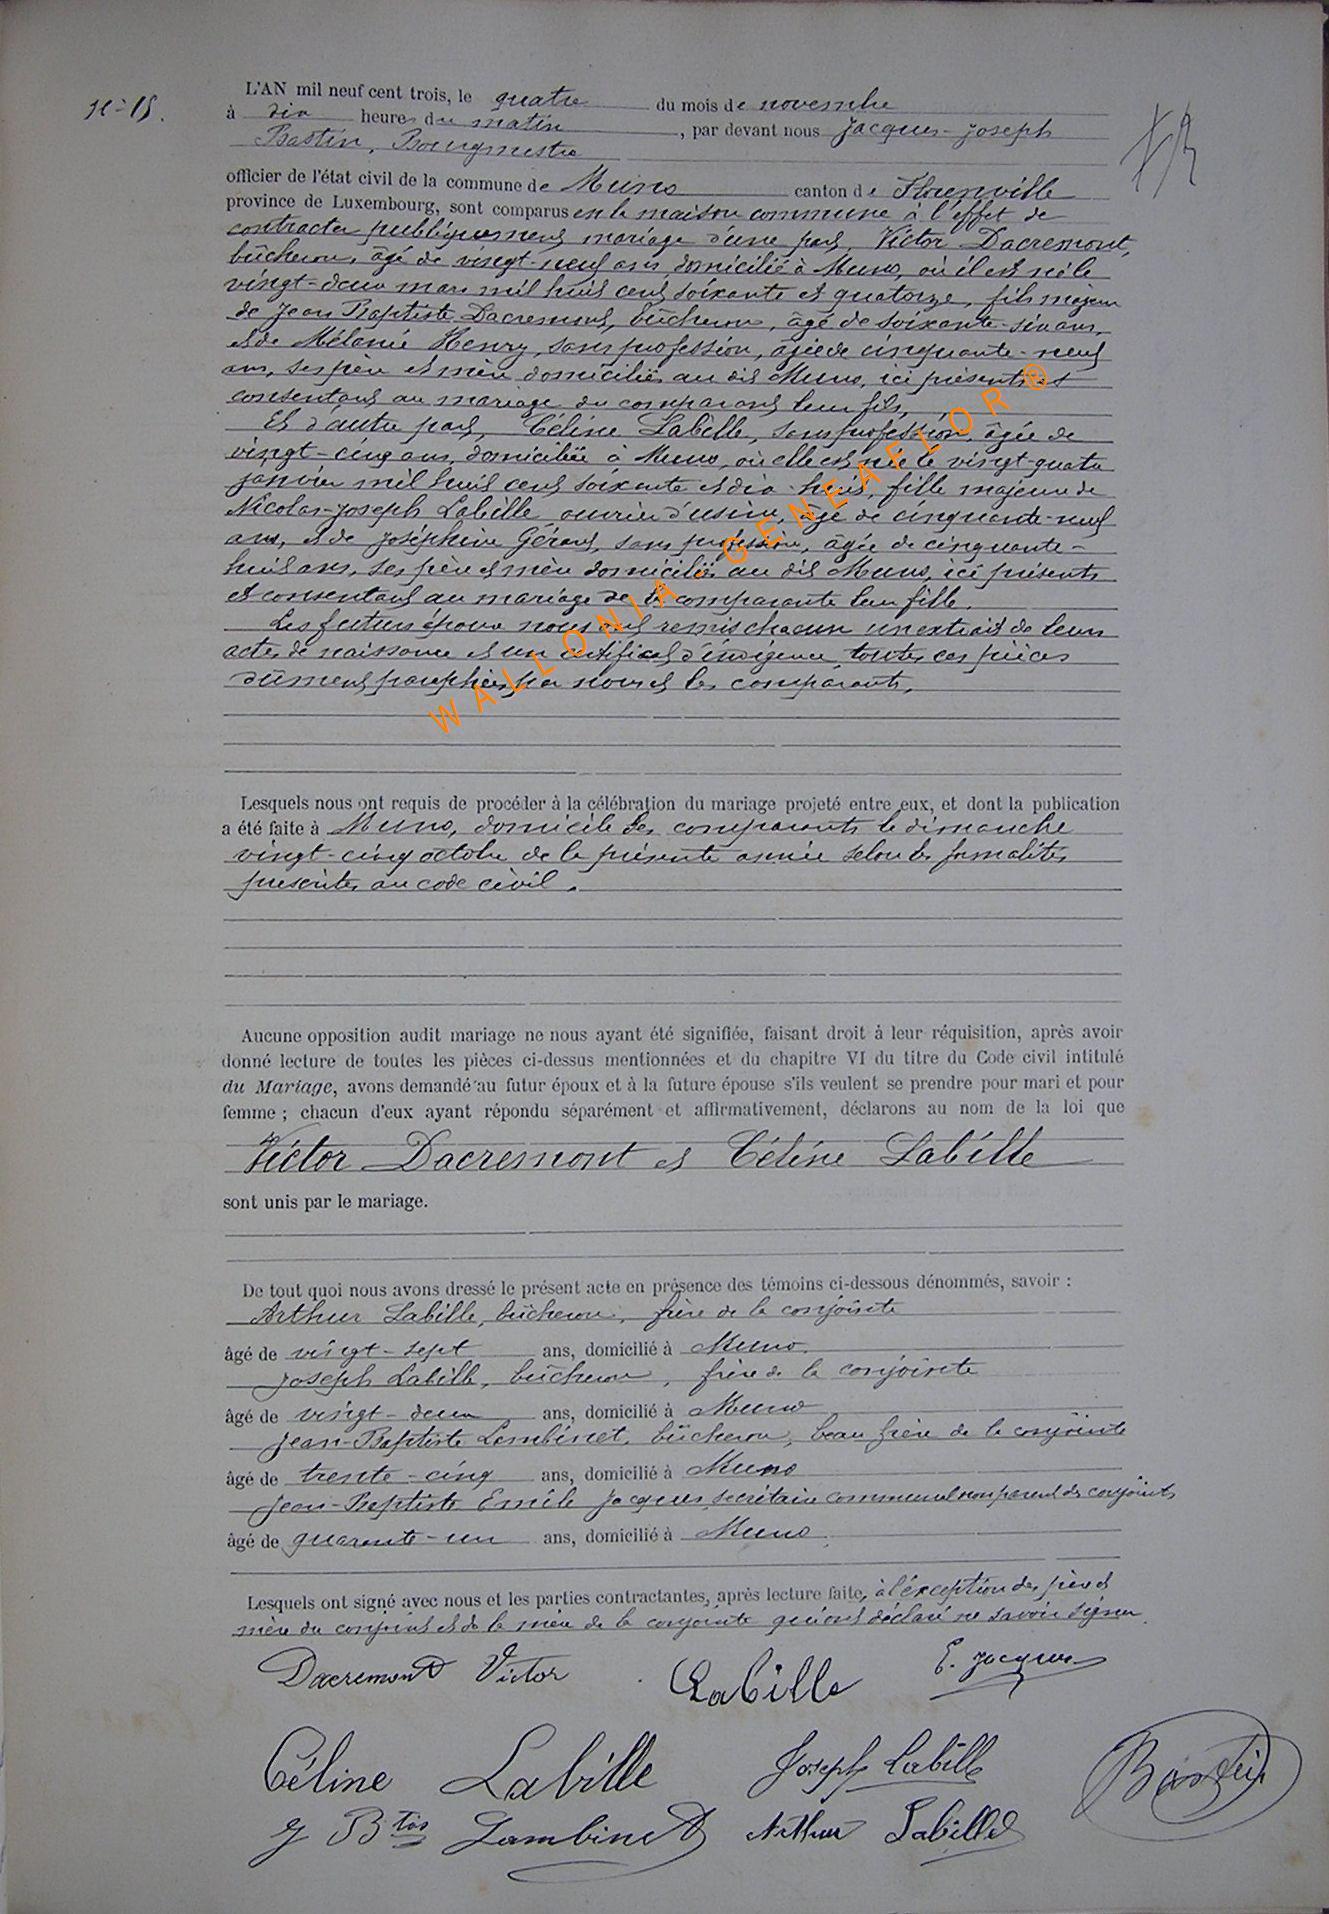 N° 15.
L'AN mil neuf cent trois, le quatre du mois de novembre
à dix heures du matin, par devant nous Jacques-Joseph
Bastin, Bourgmestre
officier de l'état civil de la commune de Muno canton de Florenville
province de Luxembourg, sont comparus en la maison commune à l'effet de
contracter publiquement mariage d'une part, Victor Dacremont,
bûcheron, âgé de vingt-neuf ans, domicilié à Muno, où il est né le
vingt-deux mars mil huit cent soixante et quatorze, fils majeur
de Jean Baptiste Dacremont, bûcheron, âgé de soixante-six ans,
et de Mélanie Henry, sans profession, âgée de cinquante-neuf
ans, ses père et mère domiciliés au dit Muno, ici présents et
consentant au mariage du comparant leur fils,
Et d'autre part, Céline Labille, sans profession, âgée de
vingt-cinq ans, domiciliée à Muno, où elle est née le vingt-quatre
janvier mil huit cent soixante et dix-huit, fille majeure de
Nicolas-Joseph Labille ouvrier d'usine, âgé de cinquante-neuf
ans, et de Joséphine Gérard, sans profession, âgée de cinquante-
huit ans, ses père et mère domiciliés au dit Muno, ici présents
et consentant au mariage de la comparante leur fille.
Les futurs époux nous ont remis chacun un extrait de leurs
actes de naissance et un certificat d'indigence, toutes ces pièces
dûment paraphées par nous et les comparants.
WALLONIA - GENEAFLOR ®
Lesquels nous ont requis de procéder à la célébration du mariage projeté entre eux, et dont la publication
a été faite à Muno, domicile des comparants le dimanche
vingt-cinq octobre de la présente année selon les formalités
prescrites au code civil.
Aucune opposition audit mariage ne nous ayant été signifiée, faisant droit à leur réquisition, après avoir
donné lecture de toutes les pièces ci-dessus mentionnées et du chapitre VI du titre du Code civil intitulé
du Mariage, avons demandé au futur époux et à la future épouse s'ils veulent se prendre pour mari et pour
femme ; chacun d'eux ayant répondu séparément et affirmativement, déclarons au nom de la loi que
Victor Dacremont et Céline Labille
sont unis par le mariage.
De tout quoi nous avons dressé le présent acte en présence des témoins ci-dessous dénommés, savoir :
Arthur Labille, bûcheron, frère de la conjointe
âgé de vingt-sept ans, domicilié à Muno.
Joseph Labille, bûcheron, frère de la conjointe
âgé de vingt-deux ans, domicilié à Muno
Jean-Baptiste Lambinet, bûcheron, beau frère de la conjointe
âgé de trente-cinq ans, domicilié à Muno
Jean-Baptiste Emile Jacques, secrétaire communal non parent des conjoints
âgé de quarante-un ans, domicilié à Muno
Lesquels ont signé avec nous et les parties contractantes, après lecture faite, à l'exception des père et
mère du conjoint et de la mère de la conjointe qui ont déclaré ne savoir signer.
Dacremont Victor Labille E. Jacques
Céline Labille Joseph Labille Bastin
J Btis Lambinet Arthur Labille